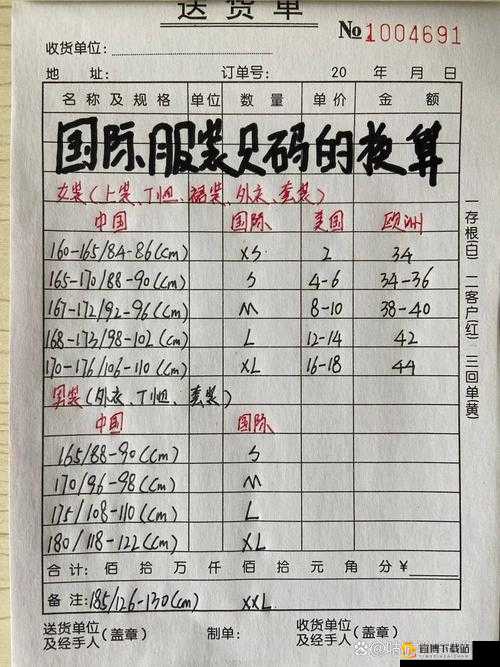 送货单
№1004691
收货单位:
地 址: 订单号: 20 年 月 日
名称及规格 单位 数量 单价 金额
国际服装尺码的换算
女装(上装、T恤、裙装、外衣、套装)
中国 国际 美国 欧洲
160-165/84-86(cm) XS 2 34
165-170/88-90(cm) S 4-6 34-36
167-172/92-96(cm) M 8-10 38-40
168-173/98-102(cm) L 12-14 42
170-176/106-110(cm) XL 16-18 44
男装(外衣、T恤、套装)
中国 国际
165/88-90(cm) S
170/96-98(cm) M
175/108-110(cm) L
180/118-122(cm) XL
合计: 佰 拾 万 仟 佰 拾 元 角 分 ¥
备注: 185/126-130(cm) XXL
送货单位及经手人(盖章) 制单: 收货单位及经手人(盖章)
一存根(白) 二客户(红) 三回单(黄)
宜博下载站